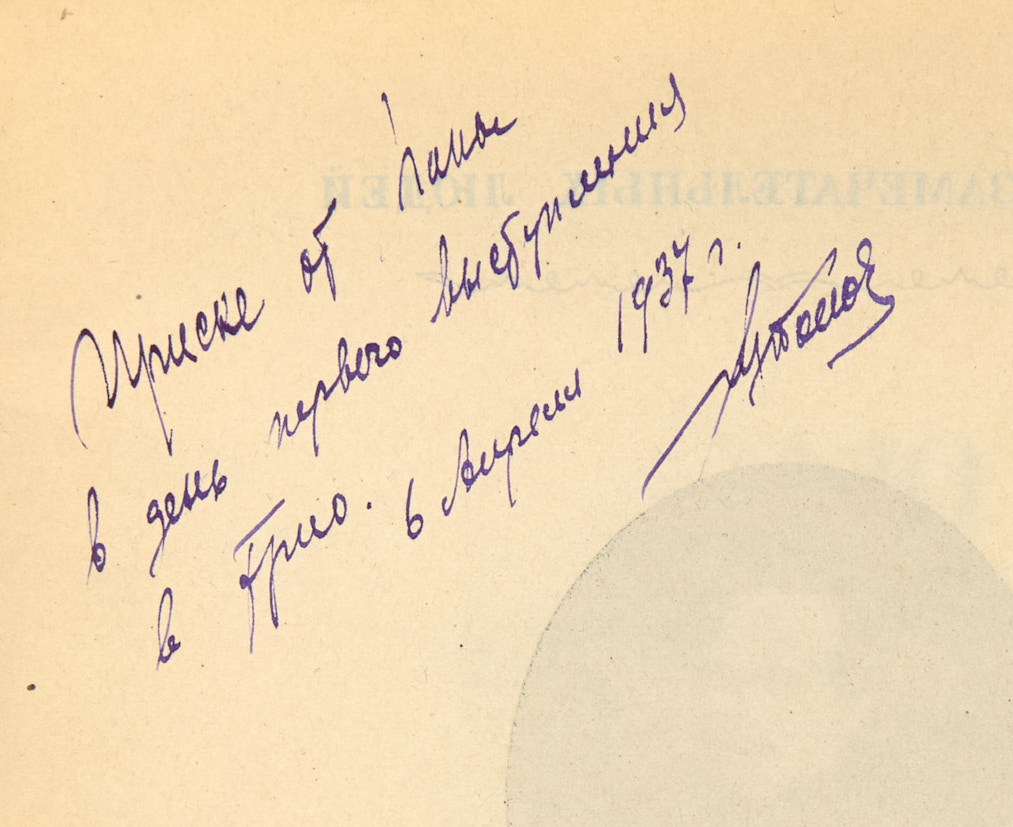 Ириске от папы
в день первого выступления
в Трио. 6 Апреля 1937 г.
ЗАМЕЧАТЕЛЬНЫХ ЛЮДЕЙ